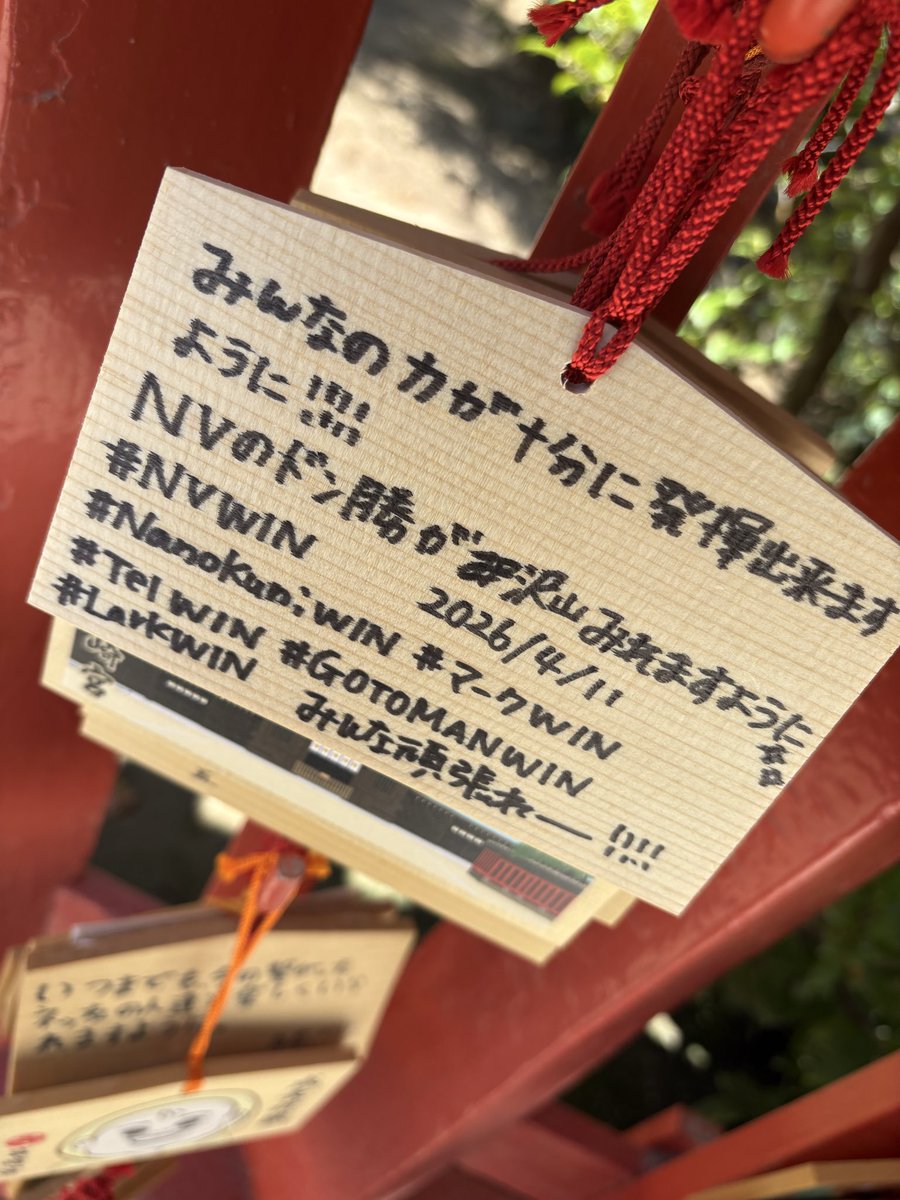 みんなの力が十分に発揮出来ます
ように!!!!!
NVのドン勝が沢山みれますように
2026/4/11
#NVWIN
#Nanokun:WIN #マークWIN
#TelWIN #GOTOMANWIN
#LarkWIN
みんな頑張れー!!!!
崎宮
いつまでも